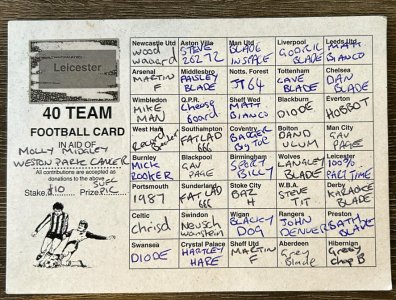 Leicester
40 TEAM
FOOTBALL CARD
IN AID OF
MOLLY MIDGLEY
WESTON PARK CANCER
All contributions are accepted as
donations to the above
Stake £10 Prize SUFC PIC
Newcastle Utd Aston Villa Man Utd Liverpool Leeds Utd
wood STEVE BLADE MATT
26272 IN SPACE BLADE BIANCO
Arsenal Middlesbro Notts. Forest Tottenham Chelsea
MARTIN PAISLEY JT64 CAVE DAN
F BLADE BLADE BLADE
Wimbledon Q.P.R. Sheff Wed Blackburn Everton
HIKE Cheese MATT DIODE HOBBOT
MAN board BIANCO
West Ham Southampton Coventry Bolton Man City
FATLAD BARBER DAN GAV
666 BIG TOE ULUM PAGE
Burnley Blackpool Birmingham Wolves Leicester
MICK GAV SPORT LANGLEY 100%
ROOKER PAGE BILLY BLADE PART TIME
Portsmouth Sunderland Stoke City W.B.A. Derby
1987 FATLAD BAZ STEVE KARAOKE
666 H TIT BLADE
Celtic Swindon Wigan Rangers Preston
chrisd Neusch BLACKY JOHN BATH
wanstein DOG DENVER BLADE
Swansea Crystal Palace Sheff Utd Aberdeen Hibernian
DIODE HARTLEY MARTIN Grey Greasy
HARE F Blade chip B